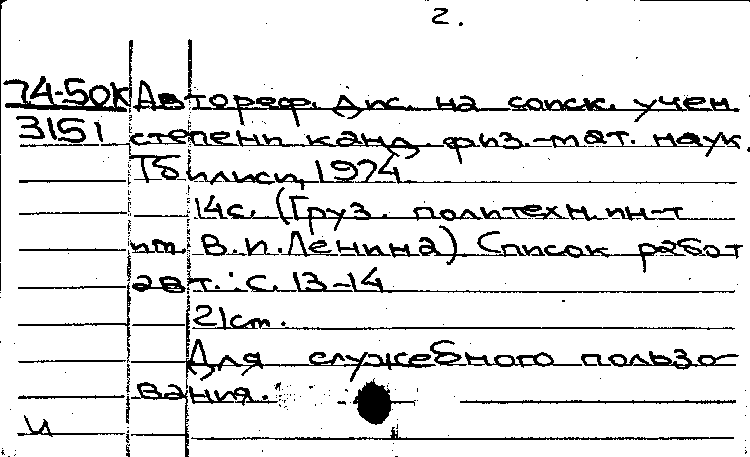 2.
74-50К Автореф. дис. на соиск. учен.
3151 степени канд. физ.-мат. наук.
Тбилиси, 1974
14с. (Груз. политехн. ин-т
им. В.И.Ленина) Список работ
авт.: с. 13-14
21см.
Для служебного пользо-
вания.
и